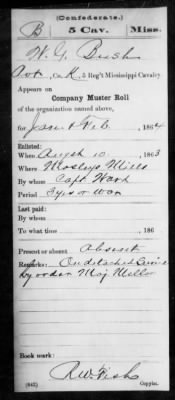 (Confederate.)
B 5 Cav. Miss.
W. G. Bush
Pvt, Co. K, 5 Reg't Mississippi Cavalry
Appears on
Company Muster Roll
of the organization named above,
for Jan & Feb, 1864
Enlisted:
When August 10, 1863
Where Mosleys Mills
By whom Capt Ward
Period 3 yrs or War
Last paid:
By whom
To what time , 186
Present or absent Absent
Remarks: On detached Service
by order Maj
Book mark:
R. W. Fish
(642) Copyist.